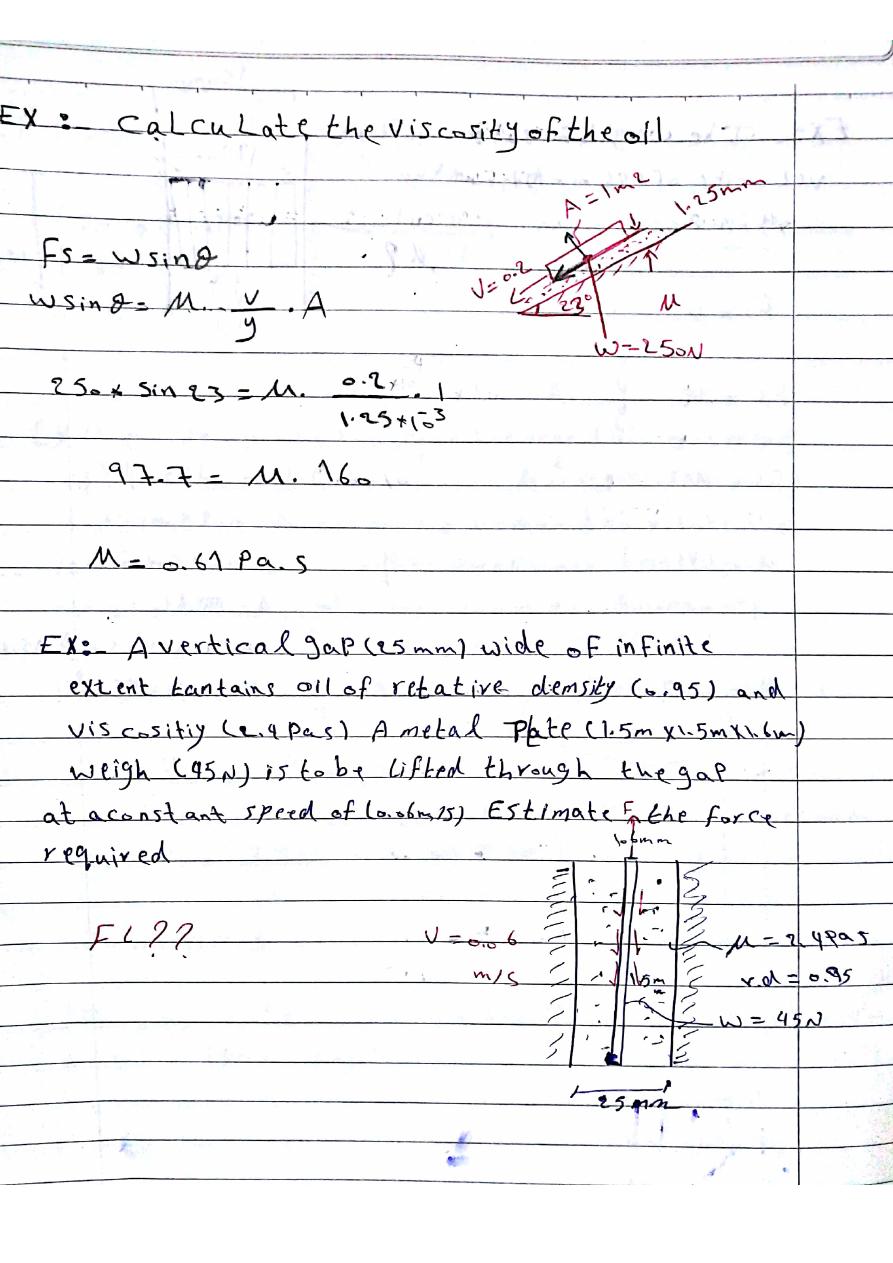 EX :- Calculate the viscosity of the oil
A = 1m²
1.25mm
Fs = w sinθ
V = 0.2
23°
M
w sinθ = M . v/y . A
W = 250N
250 * sin 23 = M . 0.2 / 1.25*10⁻³ . 1
97.7 = M . 160
M = 0.61 Pa.s
EX:- A vertical gap (25mm) wide of infinite
extent tantains oil of retative demsity (0.95) and
viscositiy (2.4 Pas) A metal Plate (1.5m x1.5mx1.6m)
weigh (45N) is to be lifted through the gap
at a constant speed of (0.06m/s) Estimate the force
required
F
1.6mm
FL??
V = 0.06
m/s
M = 2.4 Pas
1.5m
r.d = 0.95
W = 45N
25 mm